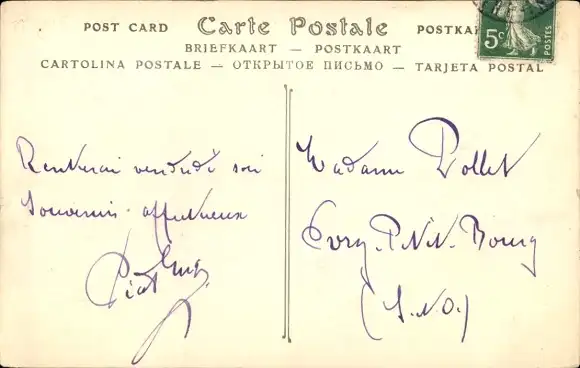 POST CARD Carte Postale POSTKA
BRIEFKAART — POSTKAART
CARTOLINA POSTALE — ОТКРЫТОЕ ПИСЬМО — TARJETA POSTAL
5c POSTES
Rentrerai vendredi soi
Souvenirs affectueux
Madame Pollet
Evry-Petit-Bourg
(S.&O.)